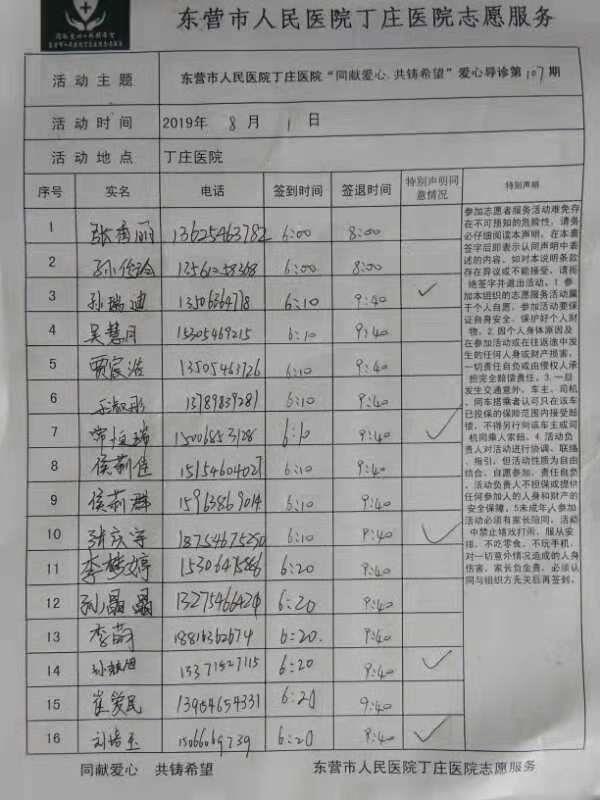 东营市人民医院丁庄医院志愿服务
活动主题 东营市人民医院丁庄医院“同献爱心、共铸希望”爱心导诊第107期
活动时间 2019年 8 月 1 日
活动地点 丁庄医院
序号 实名 电话 签到时间 签退时间 特别声明同意情况 特别声明
1 13625463782 6:00 8:00
2 13561258368 6:00 8:00
3 孙瑞迪 6:10 9:40 ✓
4 吴慧月 15305469215 6:10 9:40
5 贾宸浩 13505463726 6:10 9:40
6 13789839281 6:10 9:40
7 15006853128 6:10 9:40 ✓
8 侯莉佳 15154604027 6:10 9:40
9 侯莉群 15963869014 6:10 9:40
10 张庆宇 18754675250 6:10 9:40 ✓
11 李梦婷 15306475886 6:20 9:40
12 孙晶晶 6:20 9:40
13 李蔚 6:20. 9:40
14 15371527115 6:20 9:40 ✓
15 崔爱民 13954654331 6:20 9:40
16 刘培玉 6:20 9:40 ✓
参加志愿者服务活动难免存
在不可预知的危险性，请务
必仔细阅读本声明。在本表
签字后即表示认同声明中表
述的内容。如对本说明条款
存在异议或不能接受，请拒
绝签字并退出活动。1.参
加本组织的志愿服务活动属
于个人自愿，参加活动要保
证自身安全，保护好个人财
物。2.因个人身体原因及
在参加活动或在往返途中发
生的任何人身或财产损害，
一切责任自负或由侵权人承
担完全赔偿责任。3.一旦
发生交通意外，车主、司机
、同车搭乘者认可只在该车
已投保的保险范围内接受赔
偿，不得另行向该车主或司
机同乘人索赔。4.活动负
责人对活动进行协调、联络
、指引，但活动性质为自由
结合、自愿参加、责任自负
，活动负责人不担保或提供
任何参加人的人身和财产的
安全保障。5未成年人参加
活动必须有家长陪同，活动
中禁止嬉戏打闹，服从安
排，不吃零食，不玩手机，
对一切意外情况造成的人身
伤害，家长负全责，必须认
同与组织方无关后再签到。
同献爱心 共铸希望 东营市人民医院丁庄医院志愿服务